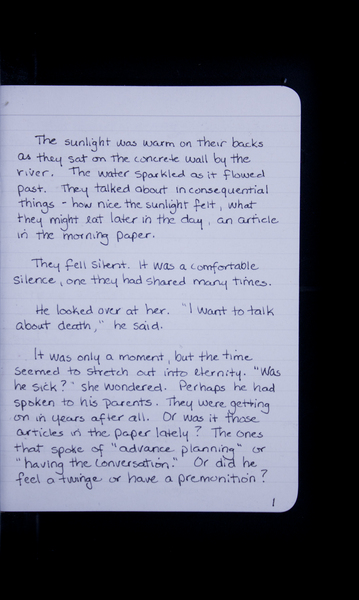 The sunlight was warm on their backs
as they sat on the concrete wall by the
river. The water sparkled as it flowed
past. They talked about inconsequential
things - how nice the sunlight felt, what
they might eat later in the day, an article
in the morning paper.
They fell silent. It was a comfortable
silence, one they had shared many times.
He looked over at her. "I want to talk
about death," he said.
It was only a moment, but the time
seemed to stretch out into eternity. "Was
he sick?" she wondered. Perhaps he had
spoken to his parents. They were getting
on in years after all. Or was it those
articles in the paper lately? The ones
that spoke of "advance planning" or
"having the conversation." Or did he
feel a twinge or have a premonition?
1